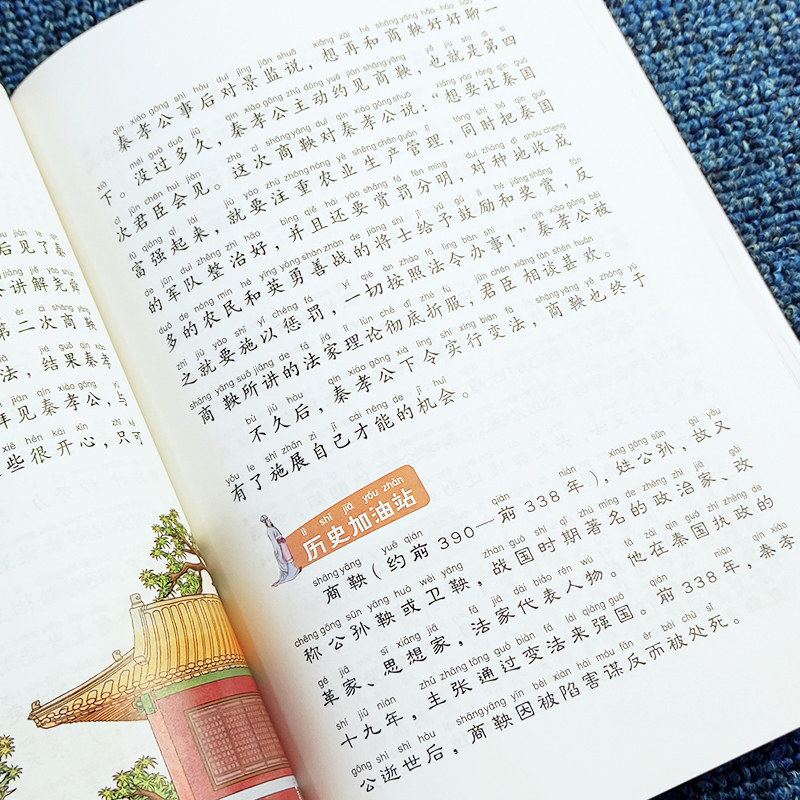 后见了秦
jiǎng jiě yáo shùn
讲解尧舜
èr cì shāng yāng
第二次商鞅
jié guǒ qín xiào
法，结果秦孝
jiàn qín xiào gōng
拜见秦孝公，与
xiē hěn kāi xīn
些很开心，只可
qín xiào gōng shì hòu duì jǐng jiān shuō xiǎng zài hé shāng yāng hǎo hǎo liáo yī
秦孝公事后对景监说，想再和商鞅好好聊一
xià méi guò duō jiǔ qín xiào gōng zhǔ dòng yuē jiàn shāng yāng yě jiù shì dì sì
下。没过多久，秦孝公主动约见商鞅，也就是第四
cì jūn chén huì jiàn zhè cì shāng yāng duì qín xiào gōng shuō xiǎng yào ràng qín guó
次君臣会见。这次商鞅对秦孝公说：“想要让秦国
fù qiáng qǐ lái jiù yào zhù zhòng nóng yè shēng chǎn guǎn lǐ tóng shí bǎ qín guó
富强起来，就要注重农业生产管理，同时把秦国
de jūn duì zhěng zhì hǎo bìng qiě hái yào shǎng fá fēn míng duì zhòng dì shōu chéng
的军队整治好，并且还要赏罚分明，对种地收成
duō de nóng mín hé yīng yǒng shàn zhàn de jiàng shì jǐ yǔ gǔ lì hé jiǎng shǎng fǎn
多的农民和英勇善战的将士给予鼓励和奖赏，反
zhī jiù yào shī yǐ chéng fá yī qiè àn zhào fǎ lìng bàn shì qín xiào gōng bèi
之就要施以惩罚，一切按照法令办事！”秦孝公被
shāng yāng suǒ jiǎng de fǎ jiā lǐ lùn chè dǐ zhé fú jūn chén xiāng tán shèn huān
商鞅所讲的法家理论彻底折服，君臣相谈甚欢。
bù jiǔ hòu qín xiào gōng xià lìng shí xíng biàn fǎ shāng yāng yě zhōng yú
不久后，秦孝公下令实行变法，商鞅也终于
yǒu le shī zhǎn zì jǐ cái néng de jī huì
有了施展自己才能的机会。
lì shǐ jiā yóu zhàn
历史加油站
shāng yāng yuē qián qián nián xìng gōng sūn gù yòu
商鞅（约前 390—前 338 年），姓公孙，故又
chēng gōng sūn yāng huò wèi yāng zhàn guó shí qī zhù míng de zhèng zhì jiā gǎi
称公孙鞅或卫鞅，战国时期著名的政治家、改
gé jiā sī xiǎng jiā fǎ jiā dài biǎo rén wù tā zài qín guó zhí zhèng de
革家、思想家，法家代表人物。他在秦国执政的
shí jiǔ nián zhǔ zhāng tōng guò biàn fǎ lái qiáng guó qián nián qín xiào
十九年，主张通过变法来强国。前 338 年，秦孝
gōng shì shì hòu shāng yāng yīn bèi xiàn hài móu fǎn ér bèi chǔ sǐ
公逝世后，商鞅因被陷害谋反而被处死。